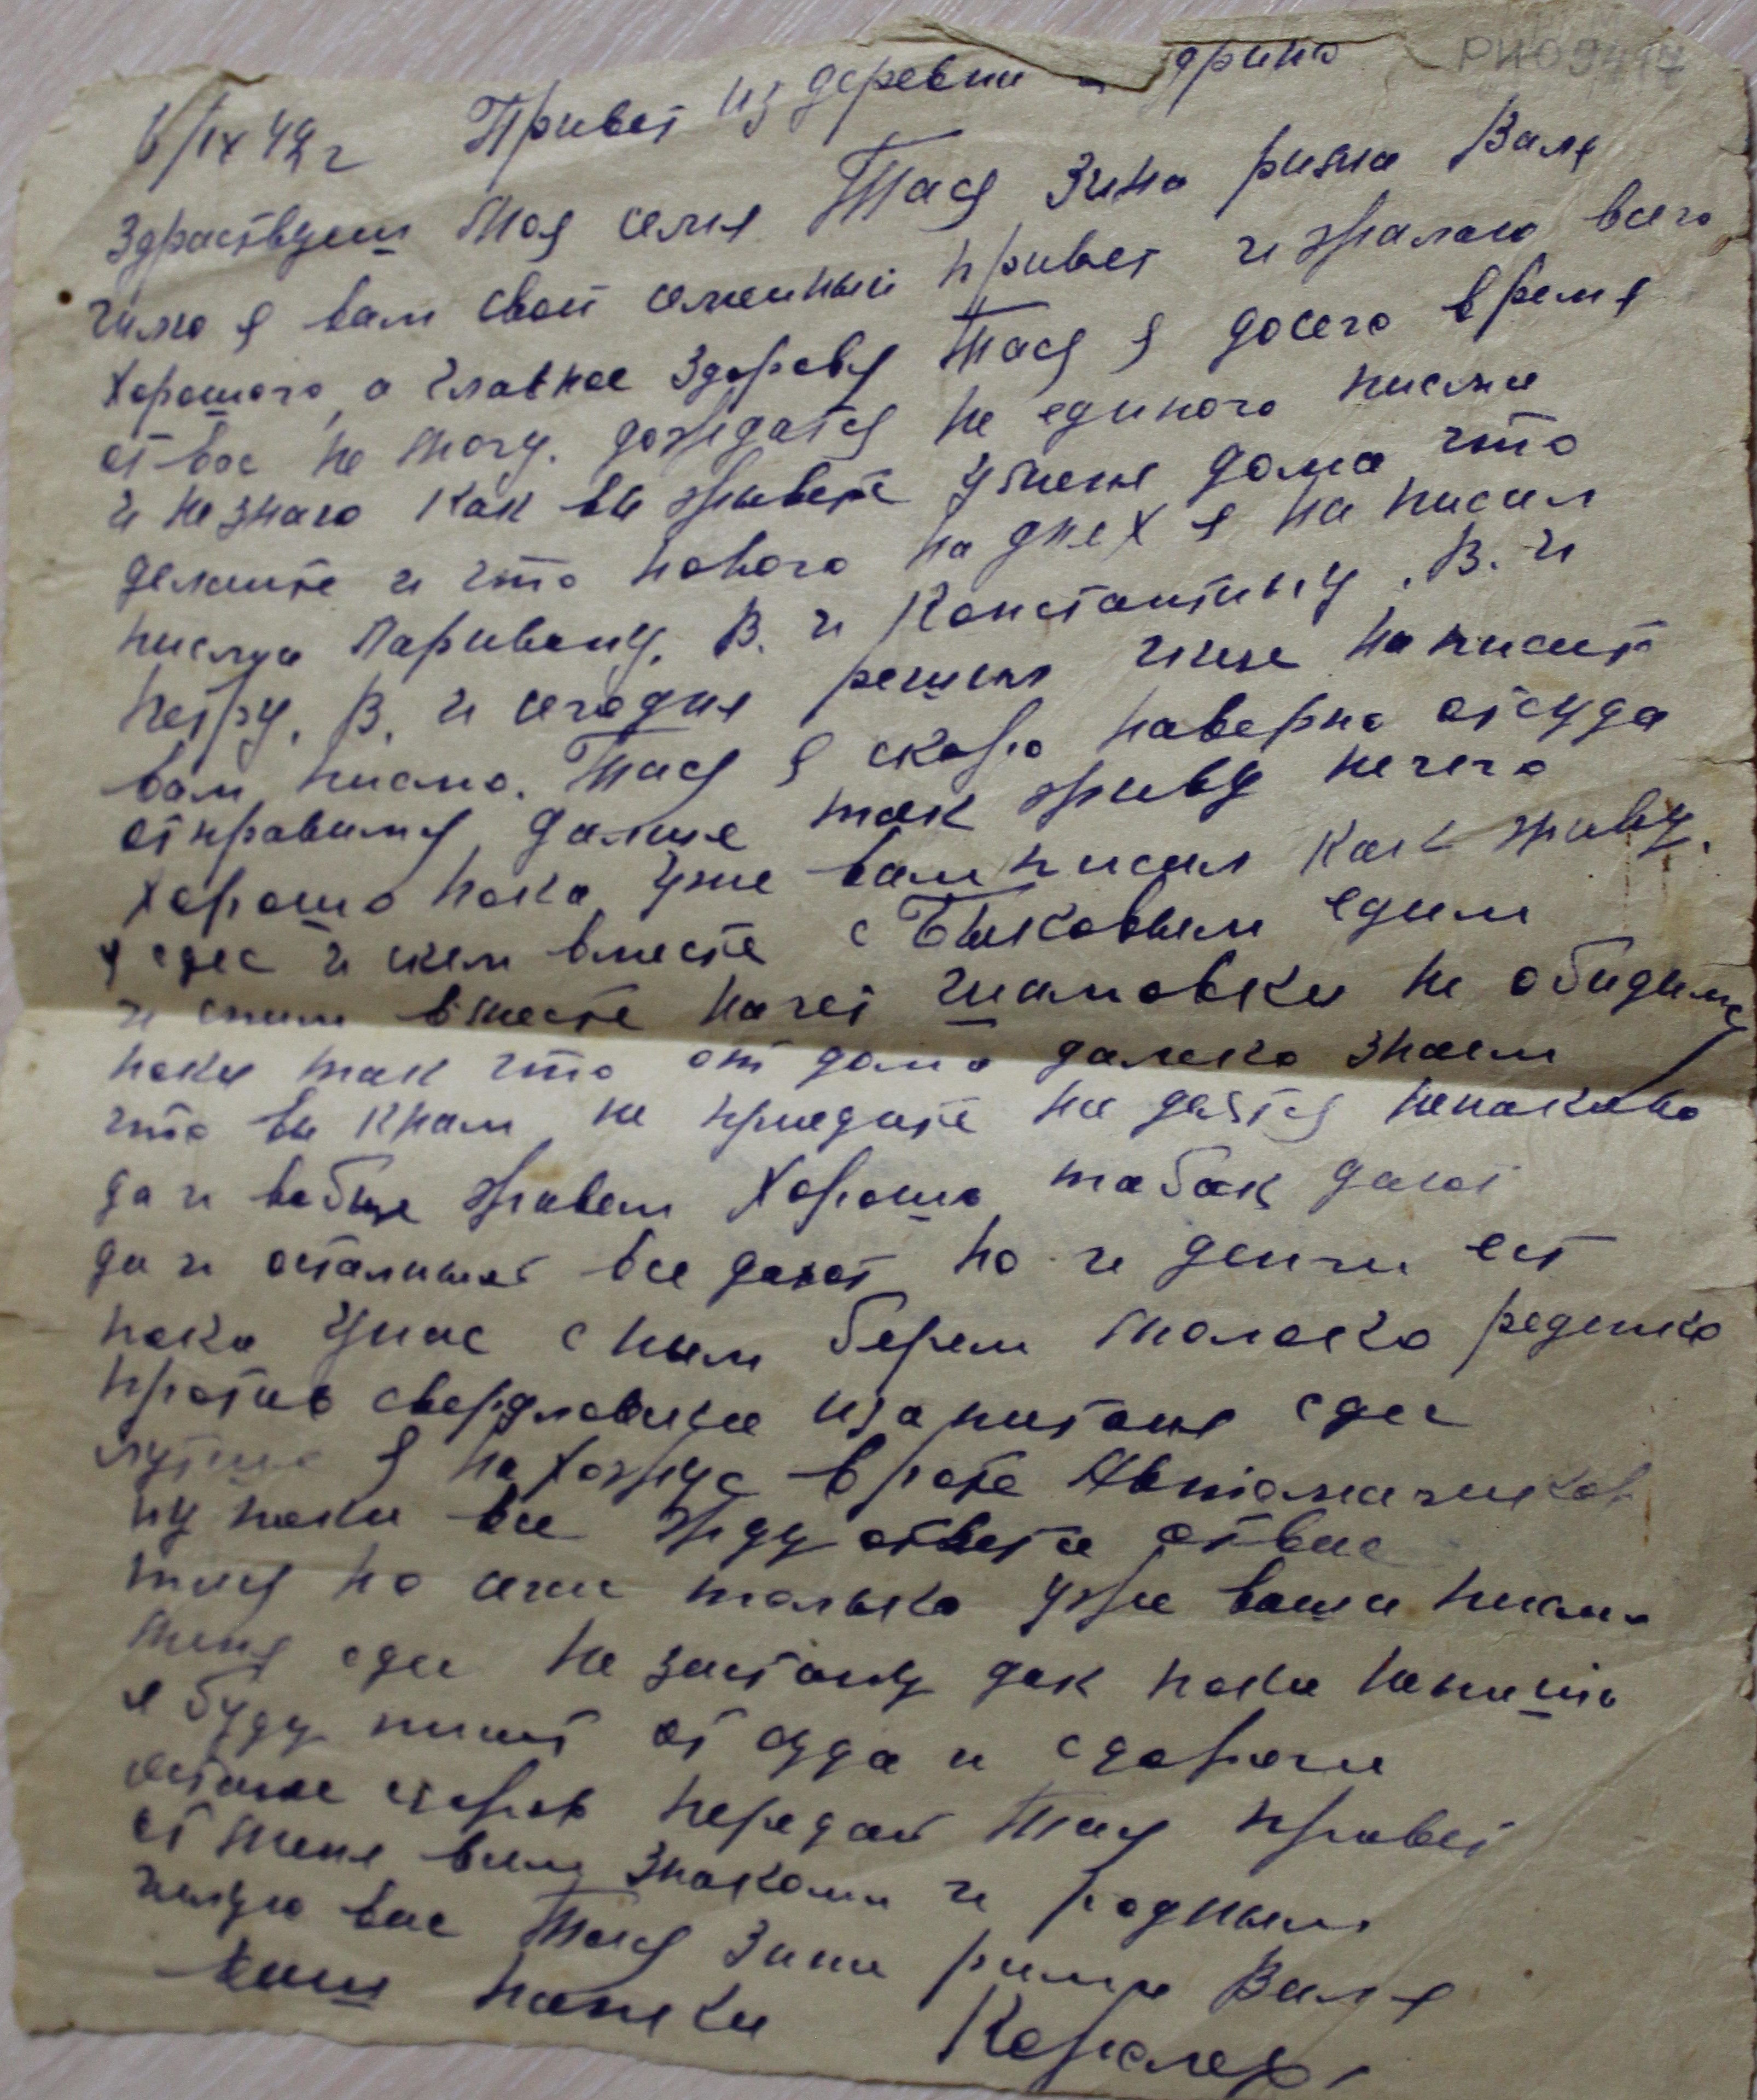 РИО 9417
6/IX 42 г Привет из деревни
Здраствуеш Моя семя Тася Зина римма Валя
чимо я вам свой семеиный привет и жалаю всего
Хорошого, а главное Здоровя Тася я досего время
от вас не могу. дождатся не единого писма
и не знаю как вы живете уменя дома что
делаите и что нового на днех я на писал
писмуа Париваму. В. и Константину. В. и
петру. В. и сегодня решил ише написат
вам писмо. Тася я скоро наверно отсуда
отправимся далше так живу нечего
Хорошо пока уже вам писал как живу.
я сдес и скем вместе с Быковым едим
и спим вместе начет шамовки не обидимся
пока так что от дома далеко знаем
что вы кнам не приедите не дастся никаково
да и вобще живем Хорошо табак дают
да и осталиное все дают но и денги ест
пока унас с ным берем молоко реденко
против свердловска изапитание сдес
лутше я нахожус вроте Автоматчиков
ну пока все жду ответа отвас
тася но если толька уже ваши писма
меня сдес не застану дак пока напишто
я буду писат от суда и сдороги
остаюс здоров передай Тася привет
от меня всем знакомым и родным
чилую вас Тася Зина римма Валя
ваш папка Королев,